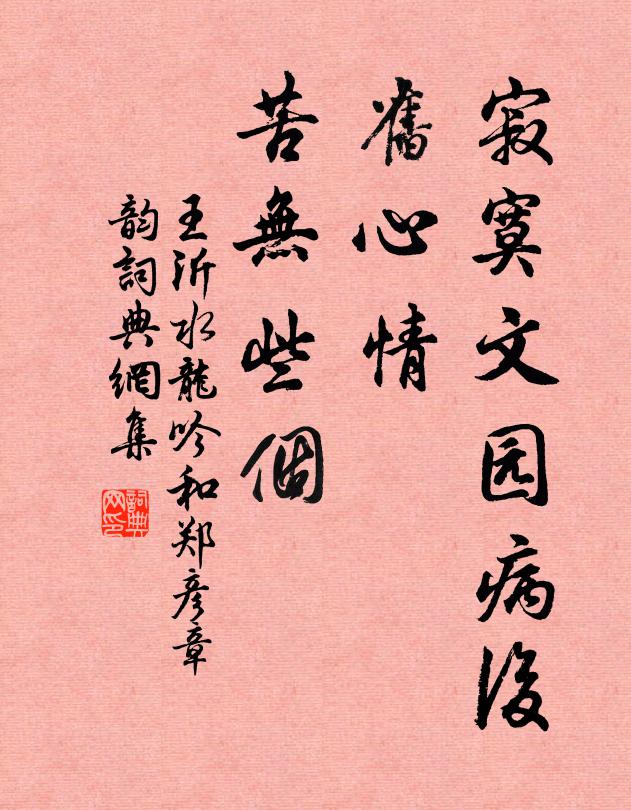 寂寞文园病後
舊心情
苦無些個
王沂水龍吟和郑彦章
韵詞典網集
詞典网印